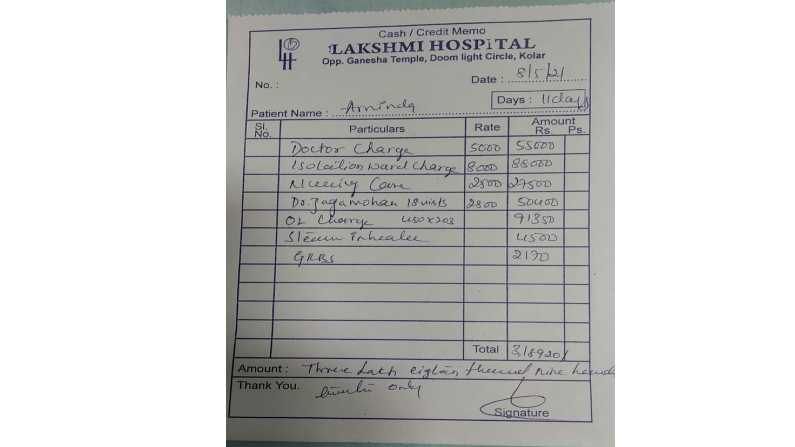 Cash / Credit Memo
LAKSHMI HOSPiTAL
Opp. Ganesha Temple, Doom light Circle, Kolar
LH
No. :
Date : 8/5/21
Days : 11 days
Patient Name :
Sl. No. Particulars Rate Amount Rs. Ps.
Doctor Charge 5000 55000
Isolation ward Charge 8000 88000
Nursing Care 2500 27500
Dr. Jagamohan 18 visits 2800 50400
O2 Charge 450x203 91350
Steam Inhaler 4500
GRBS 2170
Total 318920/
Amount : Three Lakh eighteen thousand nine hundred
twenty only
Thank You.
Signature